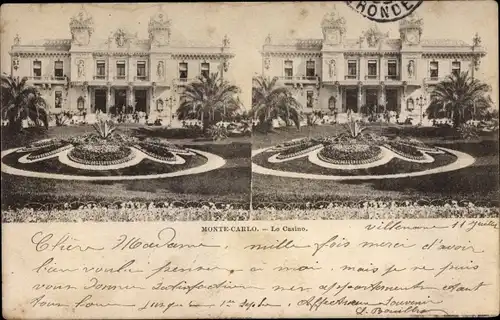 RHONE
MONTE-CARLO. — Le Casino.
Villeneuve 11 juillet
Chère Madame, mille fois merci d'avoir
bien voulu penser a moi, mais je ne puis
vous donner satisfaction mes appartements étant
tous loués jusque 1er Septe. Affectueux Souvenir